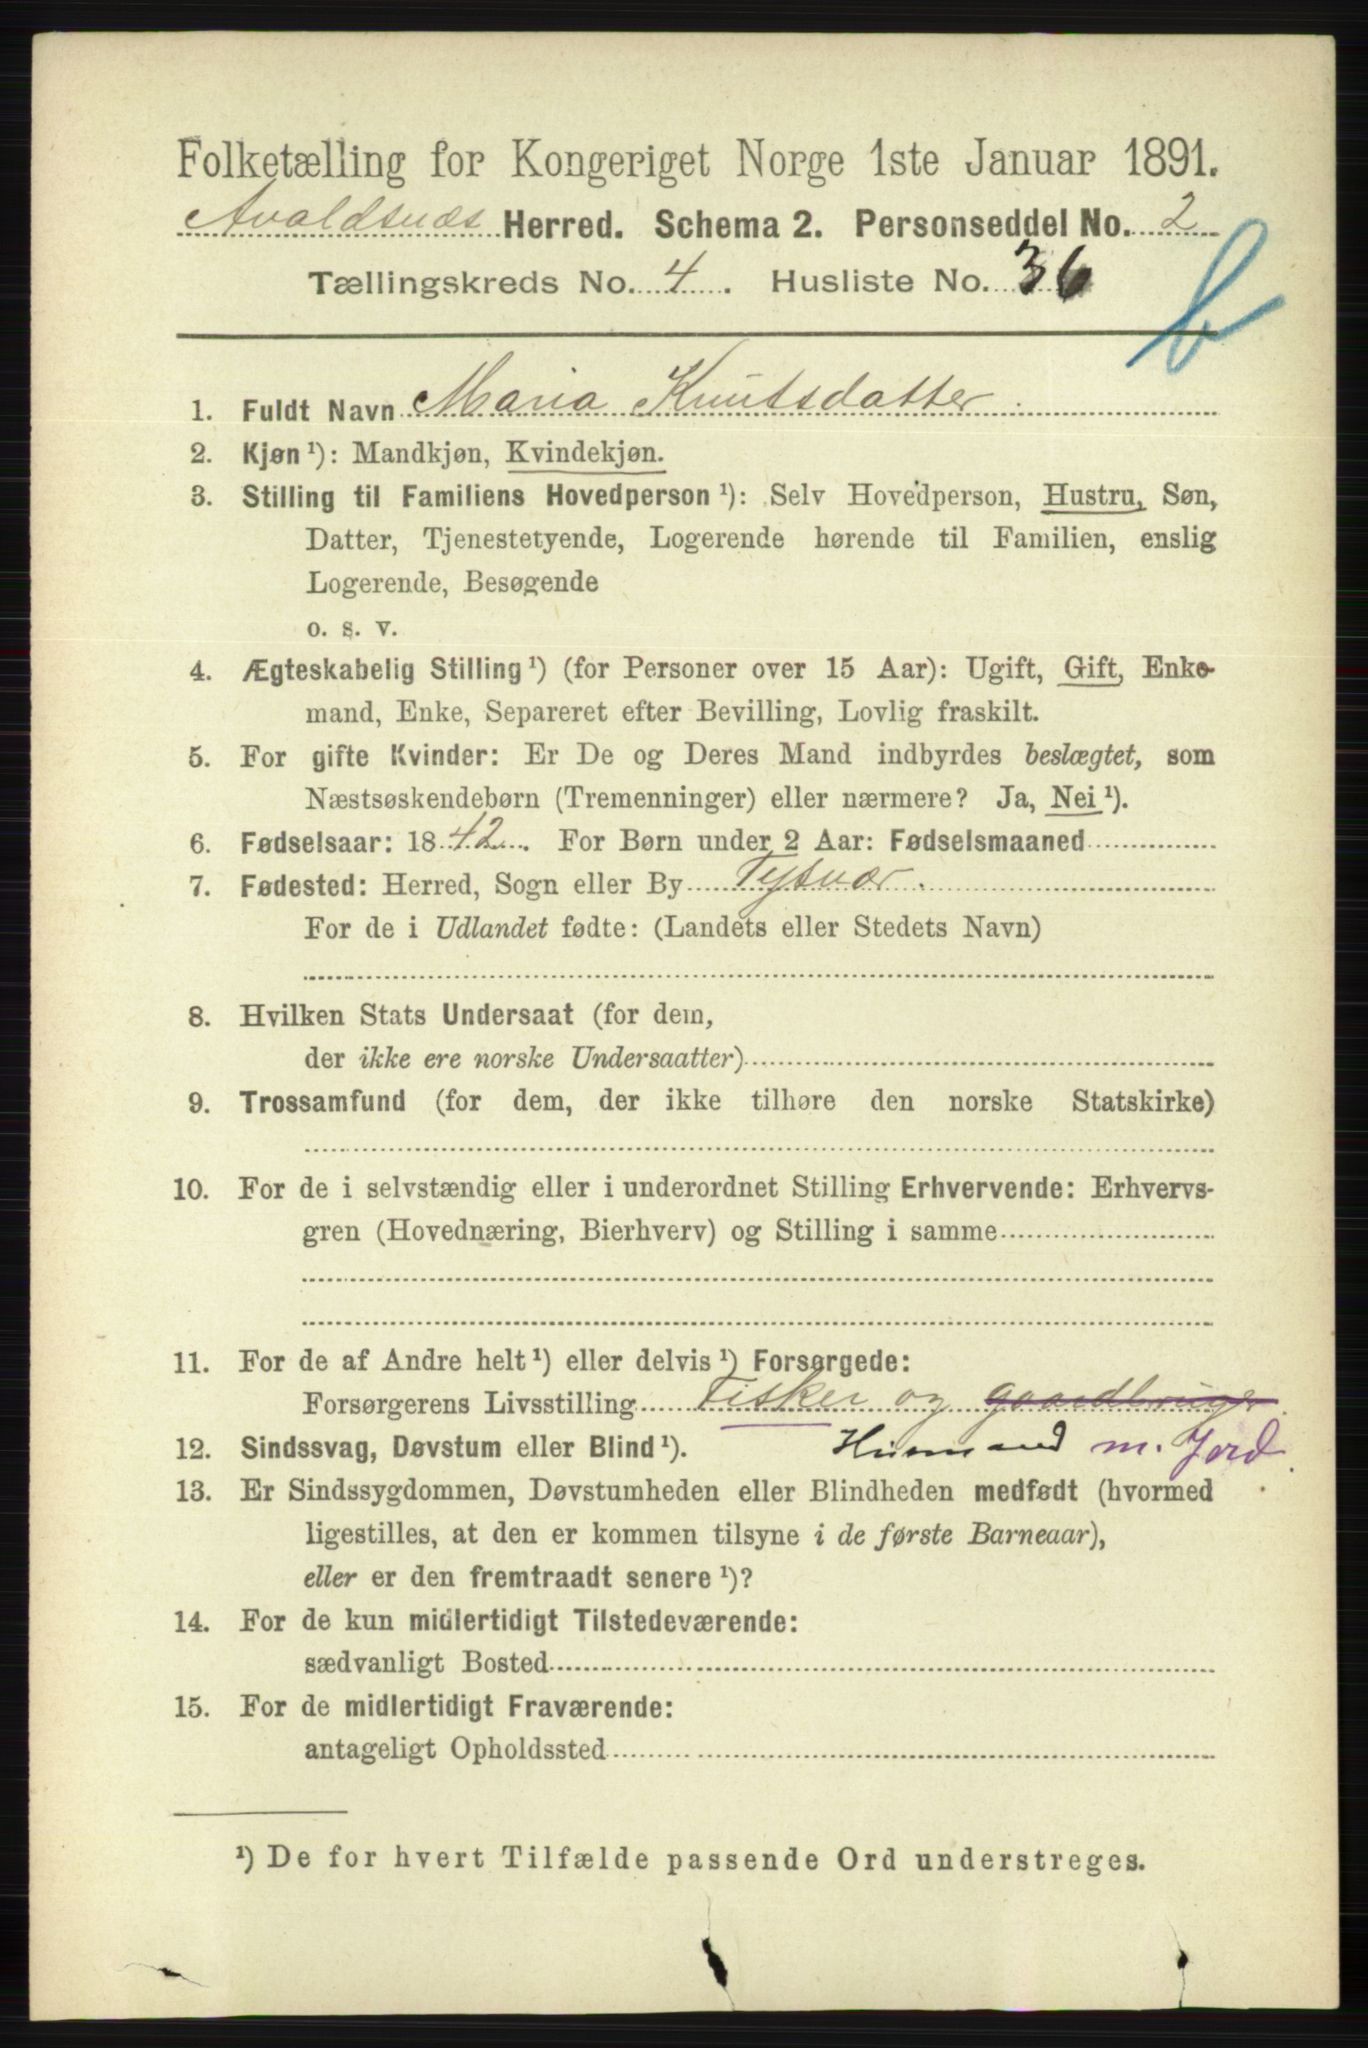 Folketælling for Kongeriget Norge 1ste Januar 1891.
Avaldsnæs Herred. Schema 2. Personseddel No. 2
Tællingskreds No. 4. Husliste No. 36
1. Fuldt Navn Maria Knutsdatter
2. Kjøn ¹): Mandkjøn, Kvindekjøn.
3. Stilling til Familiens Hovedperson ¹): Selv Hovedperson, Hustru, Søn,
Datter, Tjenestetyende, Logerende hørende til Familien, enslig
Logerende, Besøgende
o. s. v.
4. Ægteskabelig Stilling ¹) (for Personer over 15 Aar): Ugift, Gift, Enke-
mand, Enke, Separeret efter Bevilling, Lovlig fraskilt.
5. For gifte Kvinder: Er De og Deres Mand indbyrdes beslægtet, som
Næstsøskendebørn (Tremenninger) eller nærmere? Ja, Nei ¹).
6. Fødselsaar: 1842. For Børn under 2 Aar: Fødselsmaaned
7. Fødested: Herred, Sogn eller By Tysvær.
For de i Udlandet fødte: (Landets eller Stedets Navn)
8. Hvilken Stats Undersaat (for dem,
der ikke ere norske Undersaatter)
9. Trossamfund (for dem, der ikke tilhøre den norske Statskirke)
10. For de i selvstændig eller i underordnet Stilling Erhvervende: Erhvervs-
gren (Hovednæring, Bierhverv) og Stilling i samme
11. For de af Andre helt ¹) eller delvis ¹) Forsørgede:
Forsørgerens Livsstilling Fisker og gaardbruger
12. Sindssvag, Døvstum eller Blind ¹). Husmand m. Jord
13. Er Sindssygdommen, Døvstumheden eller Blindheden medfødt (hvormed
ligestilles, at den er kommen tilsyne i de første Barneaar),
eller er den fremtraadt senere ¹)?
14. For de kun midlertidigt Tilstedeværende:
sædvanligt Bosted
15. For de midlertidigt Fraværende:
antageligt Opholdssted
¹) De for hvert Tilfælde passende Ord understreges.